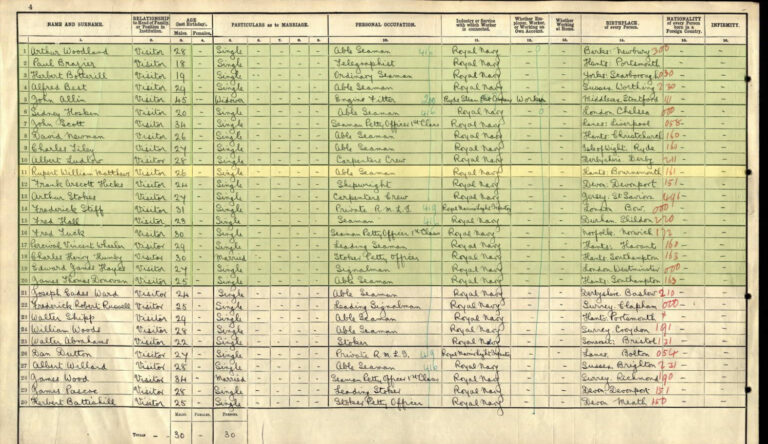 4
NAME AND SURNAME. RELATIONSHIP to Head of Family or Position in Institution. AGE (last Birthday). PARTICULARS as to MARRIAGE. PERSONAL OCCUPATION. Industry or Service with which Worker is connected. Whether Employer, Worker, or Working on Own Account. Whether Working at Home. BIRTHPLACE of every Person. NATIONALITY of every Person born in a Foreign Country. INFIRMITY.
Males. Females.
1 Arthur Woodland Visitor 28 - Single - - - - Able Seaman 416 Royal Navy - - Berks. Newbury 300 - -
2 Paul Brazier Visitor 18 - Single - - - - Telegraphist Royal Navy - - Hants. Portsmouth - -
3 Herbert Botterill Visitor 19 - Single - - - - Ordinary Seaman Royal Navy - - Yorks Scarborough 030 - -
4 Alfred Best Visitor 29 - Single - - - - Able Seaman Royal Navy - - Sussex Worthing 230 - -
5 John Allin Visitor 45 - Widower - - - - Engine Fitter Worker - Middlesex 111 - -
6 Sidney Hosken Visitor 20 - Single - - - - Able Seaman 416 Royal Navy - - London Chelsea 000 - -
7 John Scott Visitor 34 - Single - - - - Seaman Petty Officer 1st Class Royal Navy - - Lancs. Liverpool 058 - -
8 David Newman Visitor 26 - Single - - - - Able Seaman Royal Navy - - Hants Christchurch 160 - -
9 Charles Tiley Visitor 27 - Single - - - - Able Seaman Royal Navy - - Isle of Wight, Ryde 161 - -
10 Albert Ludlow Visitor 28 - Single - - - - Carpenters Crew Royal Navy - - Derbyshire Derby 211 - -
11 Rupert William Matthews Visitor 26 - Single - - - - Able Seaman Royal Navy - - Hants Bournemouth 161 - -
12 Frank Hicks Visitor 24 - Single - - - - Shipwright Royal Navy - - Devon Devonport 151 - -
13 Arthur Stokes Visitor 27 - Single - - - - Carpenters Crew Royal Navy - - Jersey. St Saviour - -
14 Frederick Stiff Visitor 31 - Single - - - - Private R.M.L.I. 419 Royal Marine Light Infantry - - London Bow 000 - -
15 Fred Hall Visitor 28 - Single - - - - Seaman 416 Royal Navy - - Durham Shildon 220 - -
16 Fred Tuck Visitor 30 - Single - - - - Seaman Petty Officer 1st Class Royal Navy - - Norfolk Norwich 173 - -
17 Percival Vincent Wheeler Visitor 29 - Single - - - - Leading Seaman Royal Navy - - Hants Havant 160 - -
18 Charles Henry Humby Visitor 30 - Married - - - - Stoker Petty Officer Royal Navy - - Hants Southampton 163 - -
19 Edward James Hayes Visitor 27 - Single - - - - Signalman Royal Navy - - London Westminster 000 - -
20 James Thomas Donovan Visitor 25 - Single - - - - Able Seaman Royal Navy - - Hants Southampton 163 - -
21 Joseph Eades Ward Visitor 24 - Single - - - - Able Seaman Royal Navy - - Derbyshire Baslow 210 - -
22 Frederick Robert Russell Visitor 25 - Single - - - - Leading Signalman Royal Navy - - Surrey Clapham 000 - -
23 Walter Shipp Visitor 29 - Single - - - - Able Seaman Royal Navy - - Hants Portsmouth - -
24 William Woods Visitor 28 - Single - - - - Able Seaman Royal Navy - - Surrey Croydon 191 - -
25 Walter Abrahams Visitor 22 - Single - - - - Stoker Royal Navy - - Somerset Bristol 131 - -
26 Dan Dutton Visitor 27 - Single - - - - Private R.M.L.I. 419 Royal Marine Light Infantry - - Lancs. Bolton 054 - -
27 Albert Willard Visitor 28 - Single - - - - Able Seaman 416 Royal Navy - - Sussex Brighton 231 - -
28 James Wood Visitor 34 - Married - - - - Seaman Petty Officer 1st Class Royal Navy - - Surrey Richmond 190 - -
29 James Pascoe Visitor 28 - Single - - - - Leading Stoker Royal Navy - - Devon Devonport 151 - -
30 Herbert Battishill Visitor 25 - Single - - - - Stoker Petty Officer Royal Navy - - Devon Meath 150 - -
Males. Females. Persons.
TOTALS 30 - 30